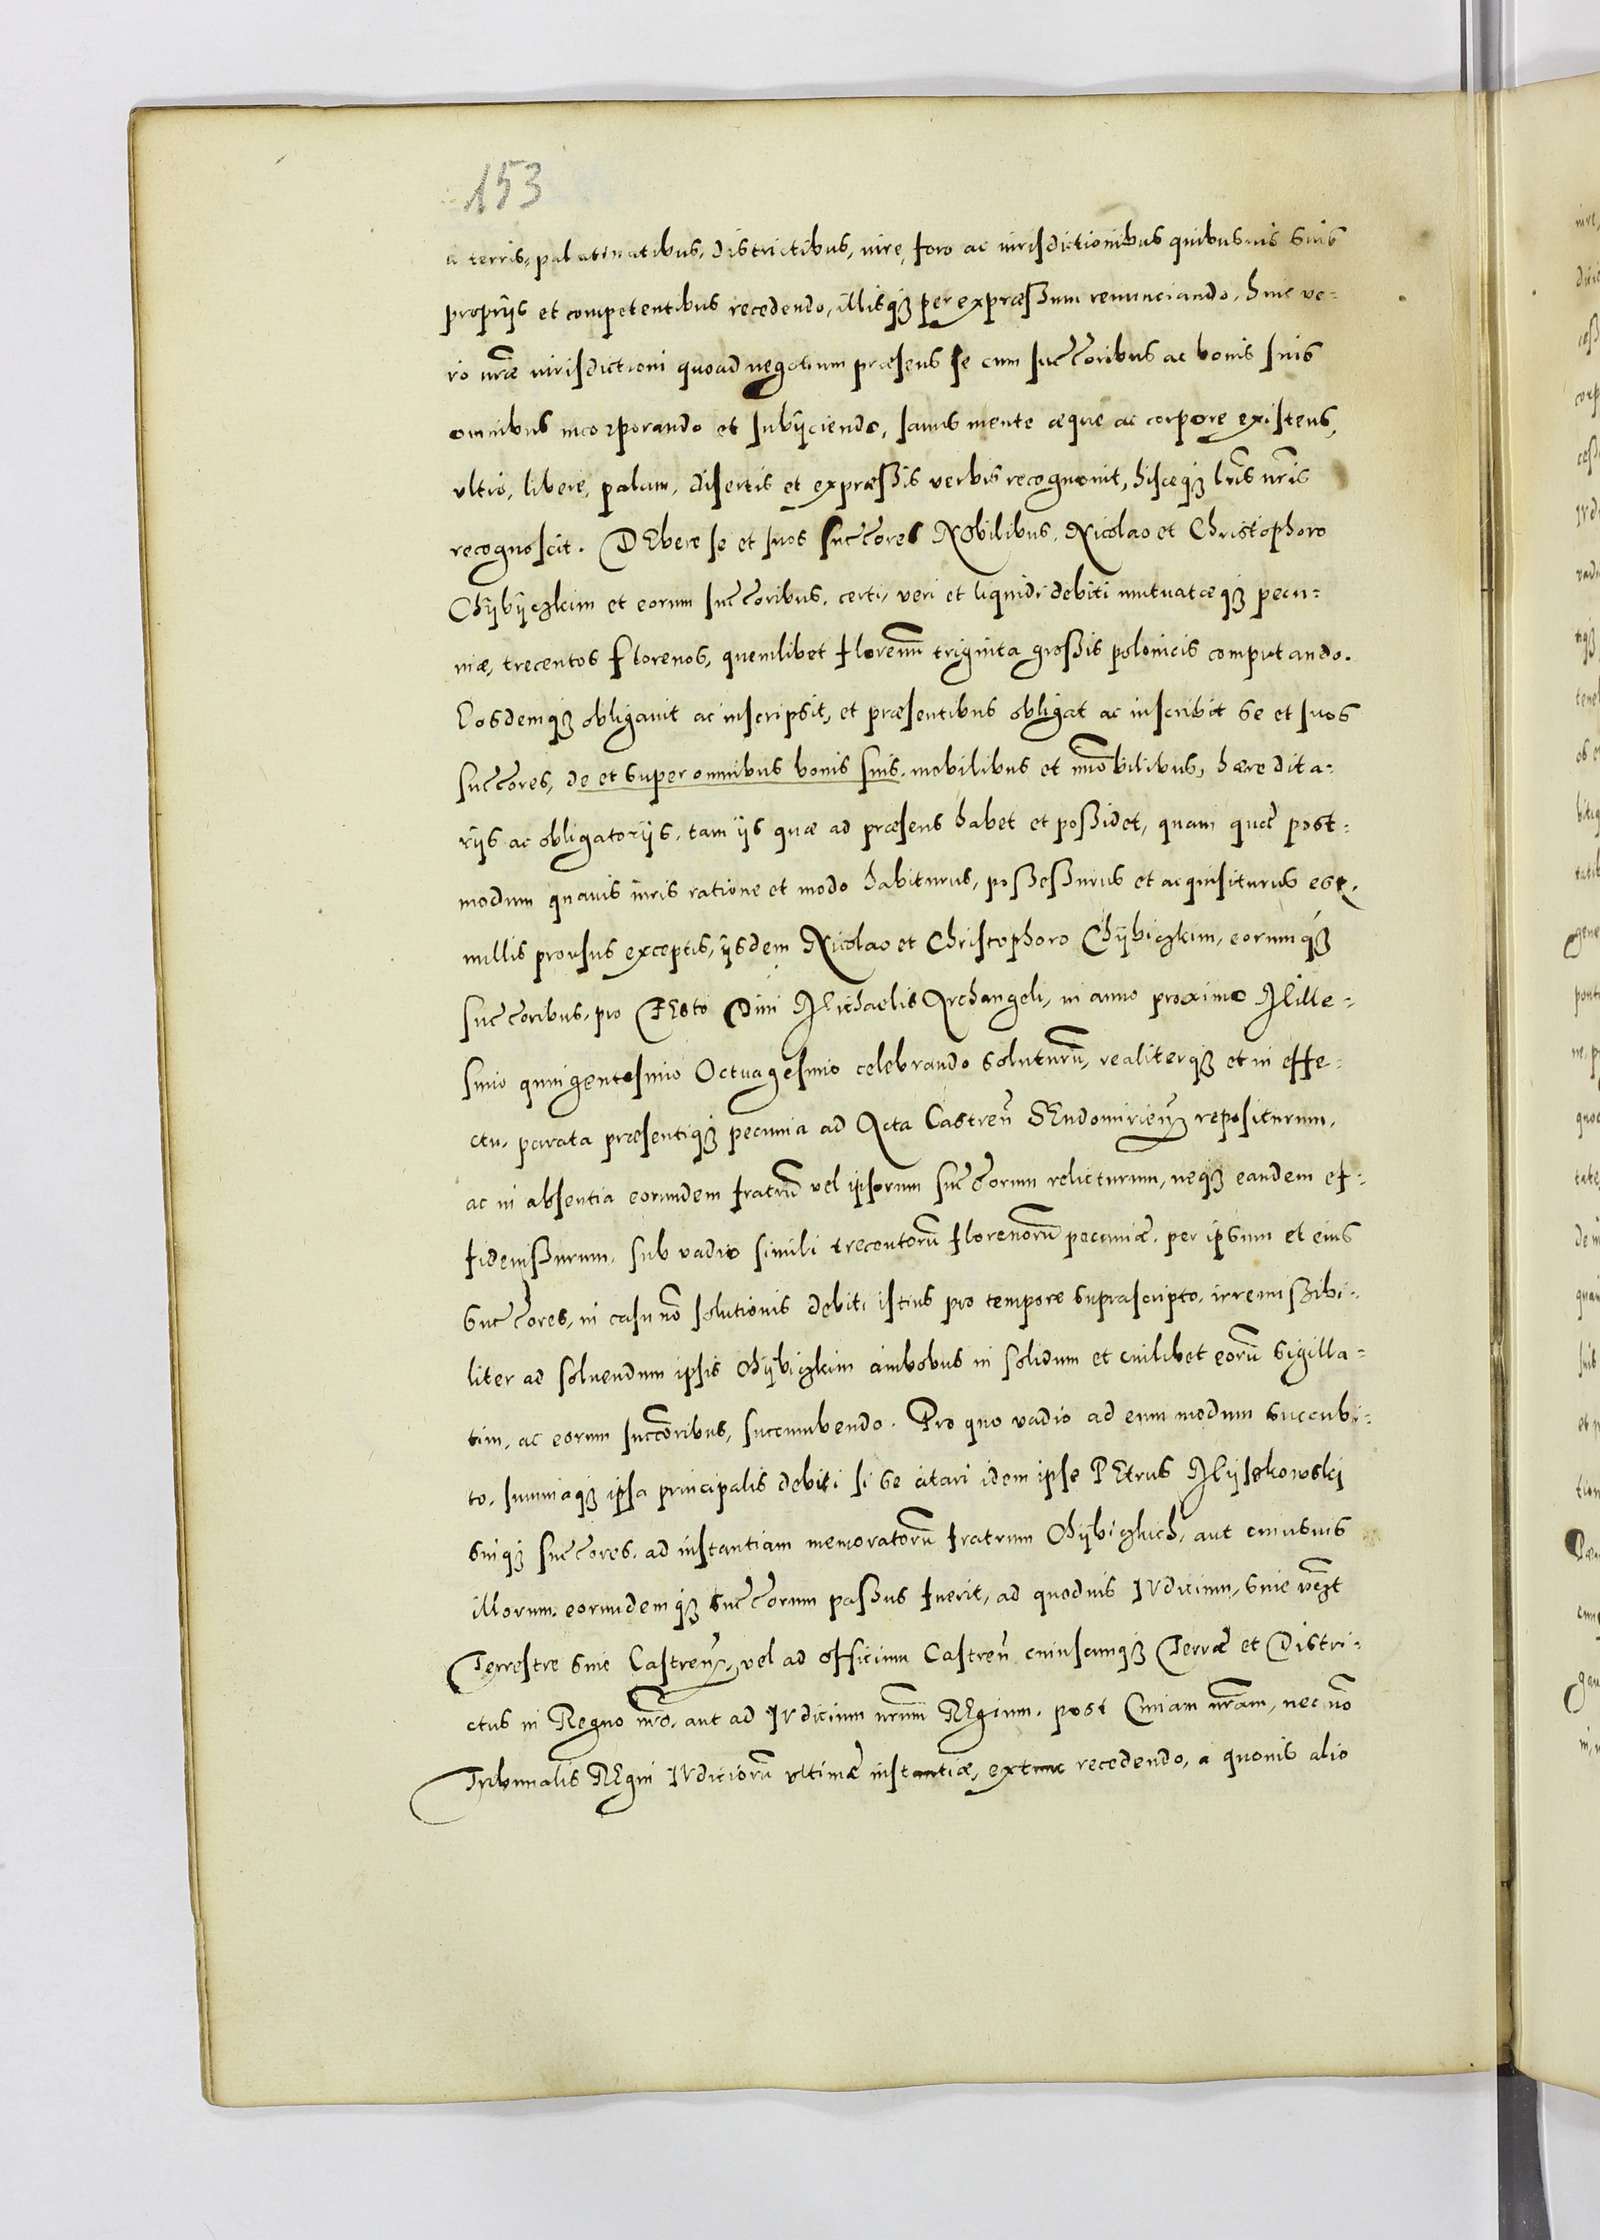 153
a terris, palatinatibus, districtibus, iure, foro ac iurisdictionibus quibusuis suis
proprijs et competentibus recedendo, illisqȝ per expræßum renunciando, huic ve=
ro nr̃æ iurisdictioni quoad negotium præsens se cum succ̃oribus ac bonis suis
omnibus incorporando et subijciendo, sanus mente æque ac corpore existens,
vltro, libere, palam, disertis et expræßis verbis recognouit, hisceqȝ lr̃is nr̃is
recognoscit. DEbere se et suos succ̃ores NObilibus, Nicolao et Christophoro
Chÿbÿczkim et eorum succ̃oribus, certi, veri et liquidi debiti mutuatæqȝ pecu=
niæ, trecentos florenos, quemlibet florenum̃ triginta großis polonicis computando.
Eosdemqȝ obligauit ac inscripsit, et præsentibus obligat ac inscribit se et suos
succ̃ores, de et super omnibus bonis suis, mobilibus et im̃obilibus, hæredita=
rijs ac obligatorijs, tam ijs quæ ad præsens habet et poßidet, quam quæ post=
modum quauis iuris ratione et modo habiturus, poßeßurus et acquisiturus est,
nullis prorsus exceptis, ijsdem Nicolao et Christophoro Chÿbiczkim, eorumqȝ
succ̃oribus, pro FEsto Diui Michaelis Archangeli, in anno proximo Mille=
simo quingentesimo Octuagesimo celebrando soluturũ, realiterqȝ et in effe=
ctu, parata præsentiqȝ pecunia ad Acta Castreñ SEndomirieñ repositurum,
ac in absentia eorundem fratrũ vel ipsorum succ̃orum relicturum, neqȝ eandem ef=
fidemßurum, sub vadio simili trecentorũ florenorũ pecuniæ, per ipsum et eius
succ̃ores, in casu nõ solutionis debiti istius pro tempore suprascripto, irremißibi=
liter ad soluendum ipsis Chÿbiczkim ambobus in solidum et cuilibet eorũ sigilla=
tim, ac eorum succ̃oribus, succumbendo. Pro quo vadio ad eum modum succubi=
to, summaqȝ ipsa principalis debiti si se citari idem ipse PEtrus Mÿskowskj
suiqȝ succ̃ores, ad instantiam memoratorũ fratrum Chÿbiczkich, aut cuiusuis
illorum, eorundemqȝ succ̃orum paßus fuerit, ad quoduis IVdicium, siue
Terrestre siue Castreñ, vel ad officium Castreñ cuiuscunqȝ Terræ et Distri=
ctus in Regno nr̃o, aut ad IVdicium nr̃um REgium, post Curiam nr̃am, nec nõ
Tribunalis REgni IVdiciorũ vltimæ instantiæ, extunc recedendo, a quouis alio